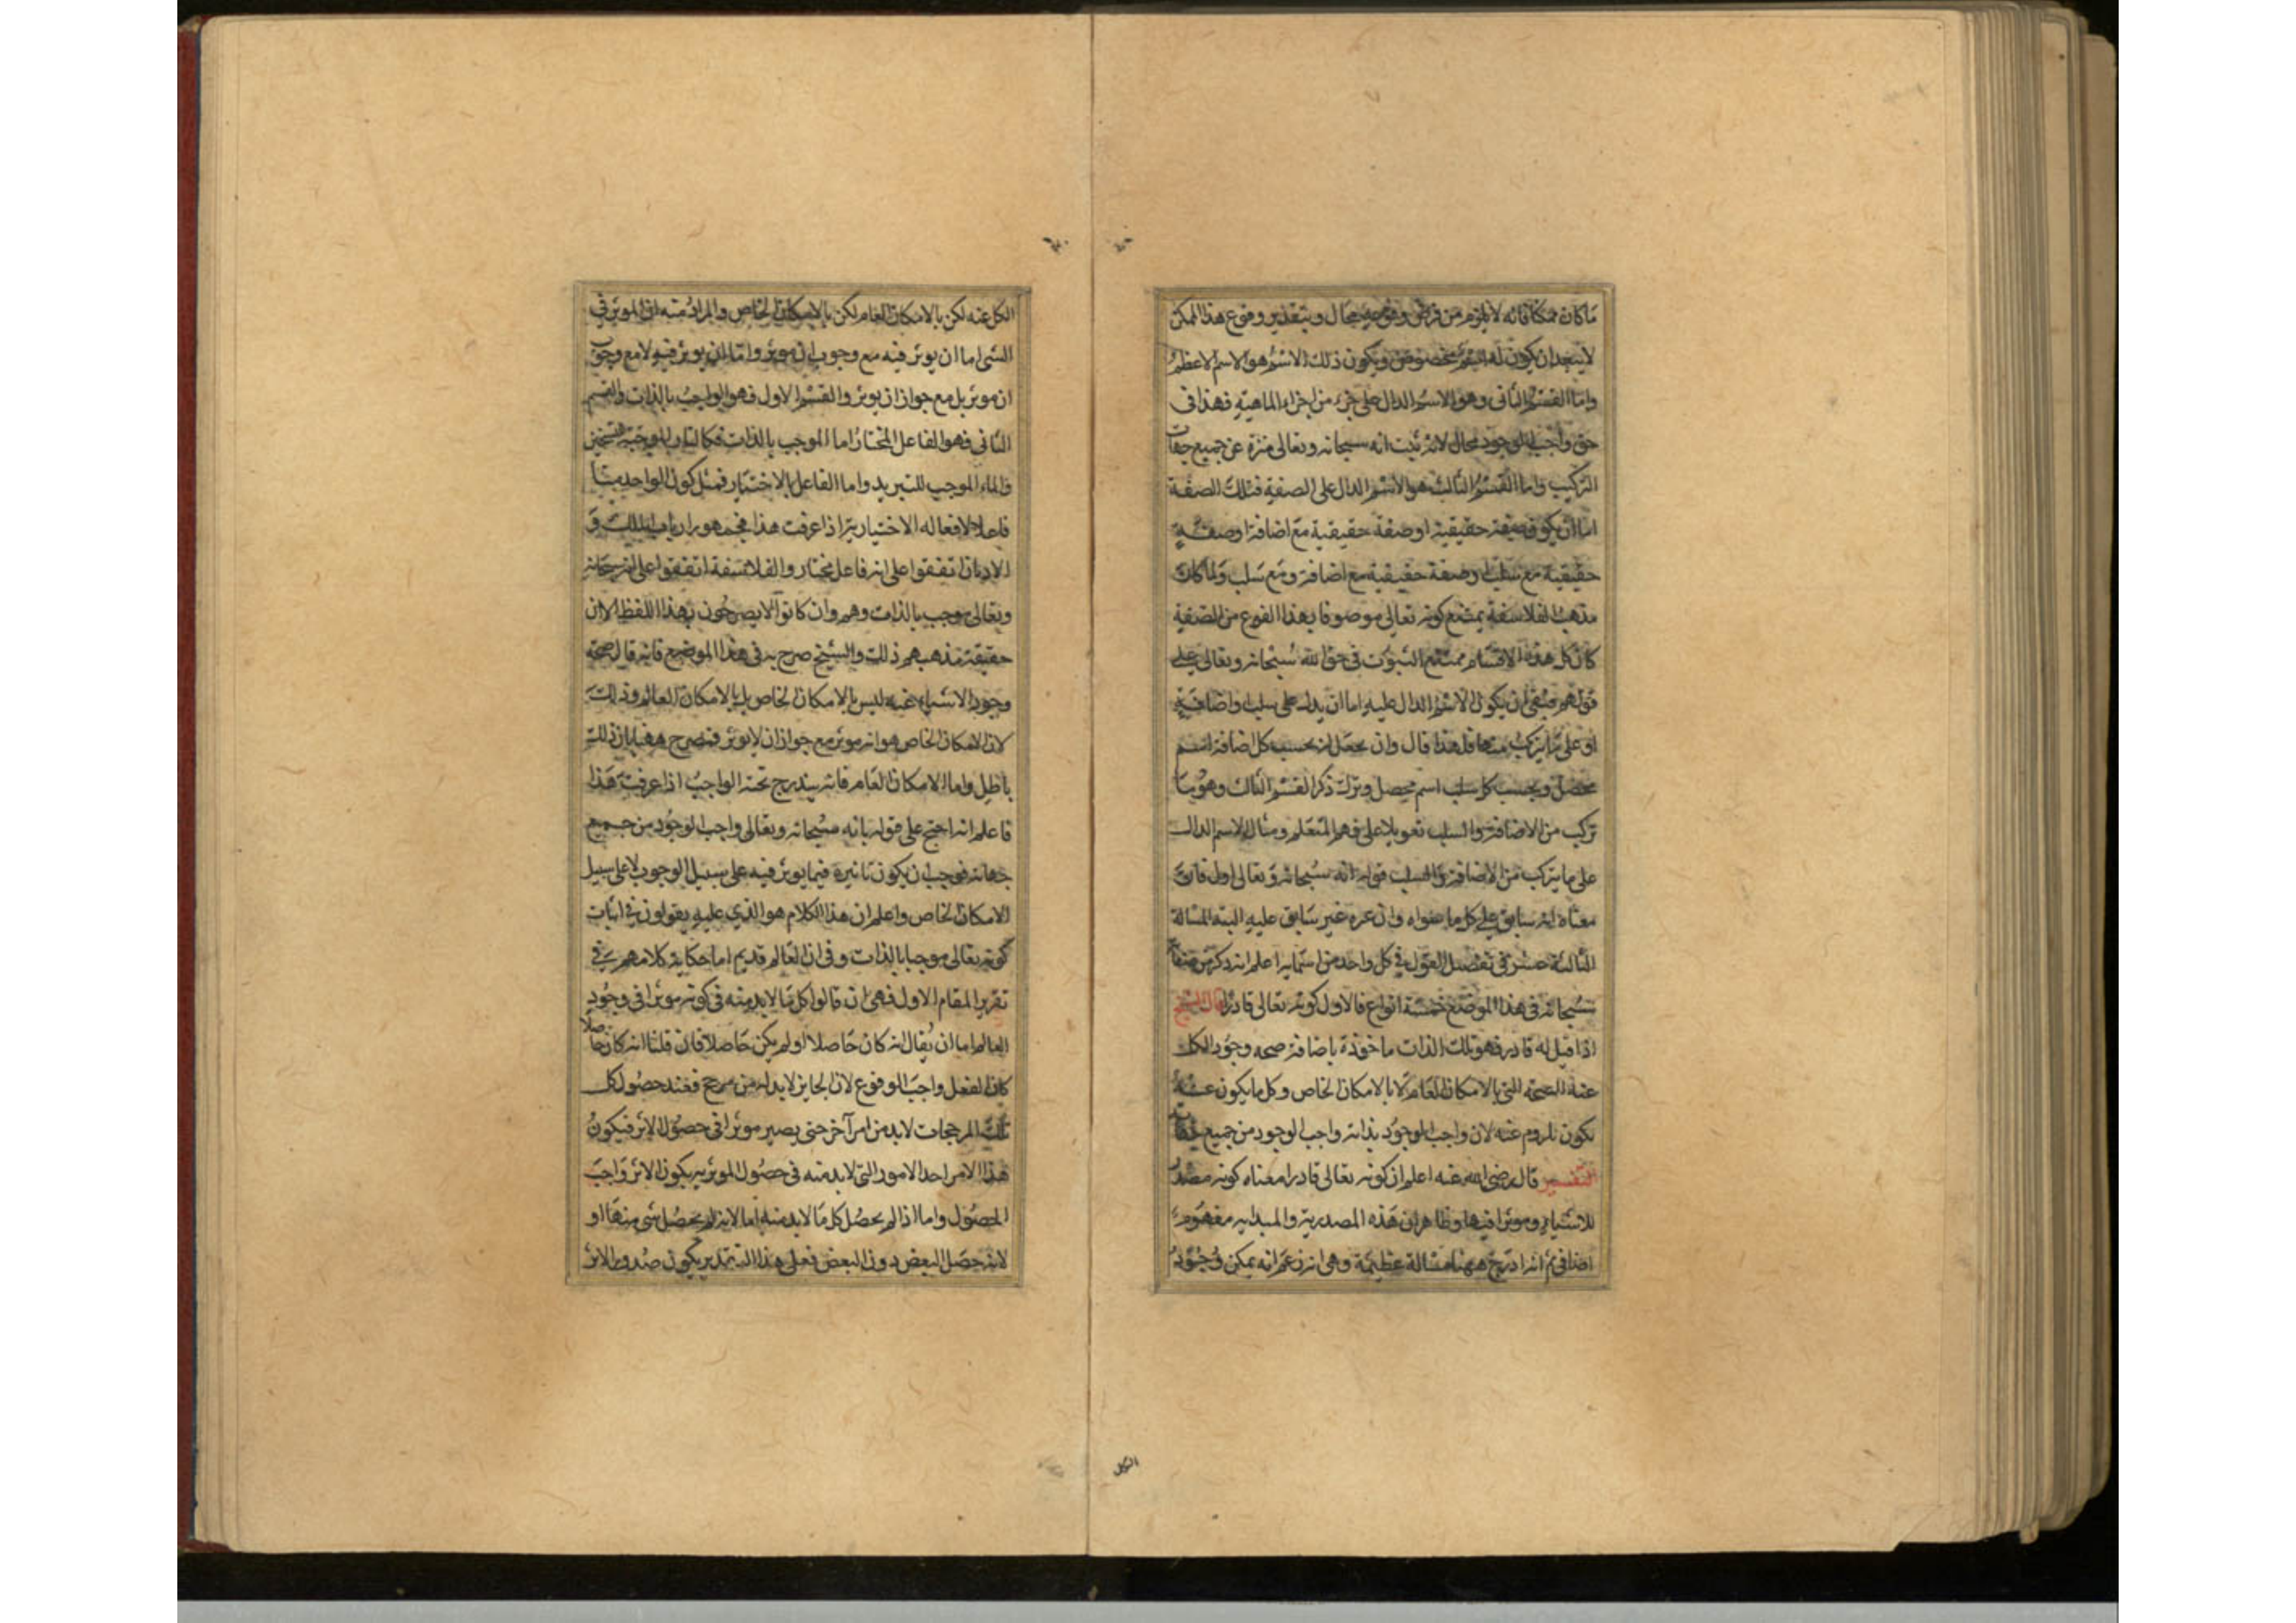 ما كان ممكنا فانه لا يلزم من فرض وقوعه محال وبتقدير وقوع هذا الممكن
لا يبعد ان يكون له اسم مخصوص ويكون ذلك الاسم هو الاسم الاعظم
واما القسم الثانى وهو الاسم الدال على جزء من اجزاء الماهية فهذا فى
حق واجب الوجود محال لانه ثبت انه سبحانه وتعالى منزه عن جميع جهات
التركيب واما القسم الثالث هو الاسم الدال على الصفة فتلك الصفة
اما ان يكون صفة حقيقية او صفة حقيقية مع اضافة او صفة
حقيقية مع سلب او صفة حقيقية مع اضافة ومع سلب ولما كان
مذهب الفلاسفة يمتنع كونه تعالى موصوفا بهذا النوع من الصفة
كان كل هذه الاقسام ممتنع الثبوت فى حق الله سبحانه وتعالى على
قولهم فبقى ان يكون الاسم الدال عليه اما ان يدل على سلب او اضافة
او على ما يتركب منهما فلهذا قال وان يحصل له بحسب كل اضافة اسم
محصل وبحسب كل سلب اسم محصل وترك ذكر القسم الثالث وهو ما
تركب من الاضافة والسلب تعويلا على فهم المتعلم ومثال الاسم الدال
على ما يتركب من الاضافة والسلب قولنا انه سبحانه وتعالى اول فان
معناه انه سابق على كل ما سواه وان غيره غير سابق عليه البتة المسالة
الثالثة عشر فى تفصيل القول فى كل واحد من اسمايه اعلم انه ذكر من صفات
سبحانه فى هذا الموضع خمسة انواع فالاول كونه تعالى قادرا قال الشيخ
اذا قيل له قادر فهو تلك الذات ماخوذة باضافة صحه وجود الكل
عنه الصحه التى بالامكان العام لا بالامكان الخاص وكل ما يكون عنه
يكون بلزوم عنه لان واجب الوجود بذاته واجب الوجود من جميع جهاته
التفسير قال رضى الله عنه اعلم ان كونه تعالى قادرا معناه كونه مصدر
للاشياء وموثرا فيها وظاهر ان هذه المصدرية والمبدايه مفهوم
اضافى ثم انه ادرج ههنا مسالة عظيمة وهى انه زعم انه يمكن وجود
الكل
الكل عنه لكن بالامكان العام لكن بالامكان الخاص والمراد منه ان الموثر فى
الشى اما ان يوثر فيه مع وجوب ان يوثر واما ان يوثر فيه لا مع وجوب
ان موثر بل مع جواز ان يوثر والقسم الاول فهو الواجب بالذات والقسم
الثانى فهو الفاعل المختار اما الموجب بالذات فكالنار الموجبة للتسخين
والماء الموجب للتبريد واما الفاعل بالاختيار فمثل كون الواحد منا
فاعلا لافعاله الاختياريه اذا عرفت هذا فجمهور ارباب الملل و
الاديان اتفقوا على انه فاعل مختار والفلاسفة اتفقوا على انه سبحانه
وتعالى موجب بالذات وهم وان كانوا لا يصرحون بهذا اللفظ الا ان
حقيقة مذهبهم ذلك والشيخ صرح به فى هذا الموضع فانه قال صحة
وجود الاشياء عنه ليس بالامكان الخاص بل بالامكان العام وذلك
لان الامكان الخاص هو انه موثر مع جواز ان لا يوثر فصرح ههنا بان ذلك
باطل واما الامكان العام فانه يندرج تحته الواجب اذا عرفت هذا
فاعلم انه احتج على قوله بانه سبحانه وتعالى واجب الوجود من جميع
جهاته فوجب ان يكون تاثيره فيما يوثر فيه على سبيل الوجوب لا على سبيل
الامكان الخاص واعلم ان هذا الكلام هو الذى عليه يعولون فى اثبات
كونه تعالى موجبا بالذات وفى ان العالم قديم اما حكاية كلامهم فى
تقرير المقام الاول فهى ان قالوا كل ما لا بد منه فى كونه موثرا فى وجود
العالم اما ان يقال انه كان حاصلا او لم يكن حاصلا فان قلنا انه كان حاصلا
كان الفعل واجب الوقوع لان الجايز لا بد له من مرجح فعند حصول كل
تلك المرجحات لا بد من امر آخر حتى يصير موثرا فى حصول الاثر فيكون
هذا الامر احد الامور التى لا بد منه فى حصول الموثريه يكون الاثر واجب
الحصول واما اذا لم يحصل كل ما لا بد منه اما لانه لم يحصل شى منها او
لانه حصل البعض دون البعض فعلى هذا التقدير يكون صدور الاثر